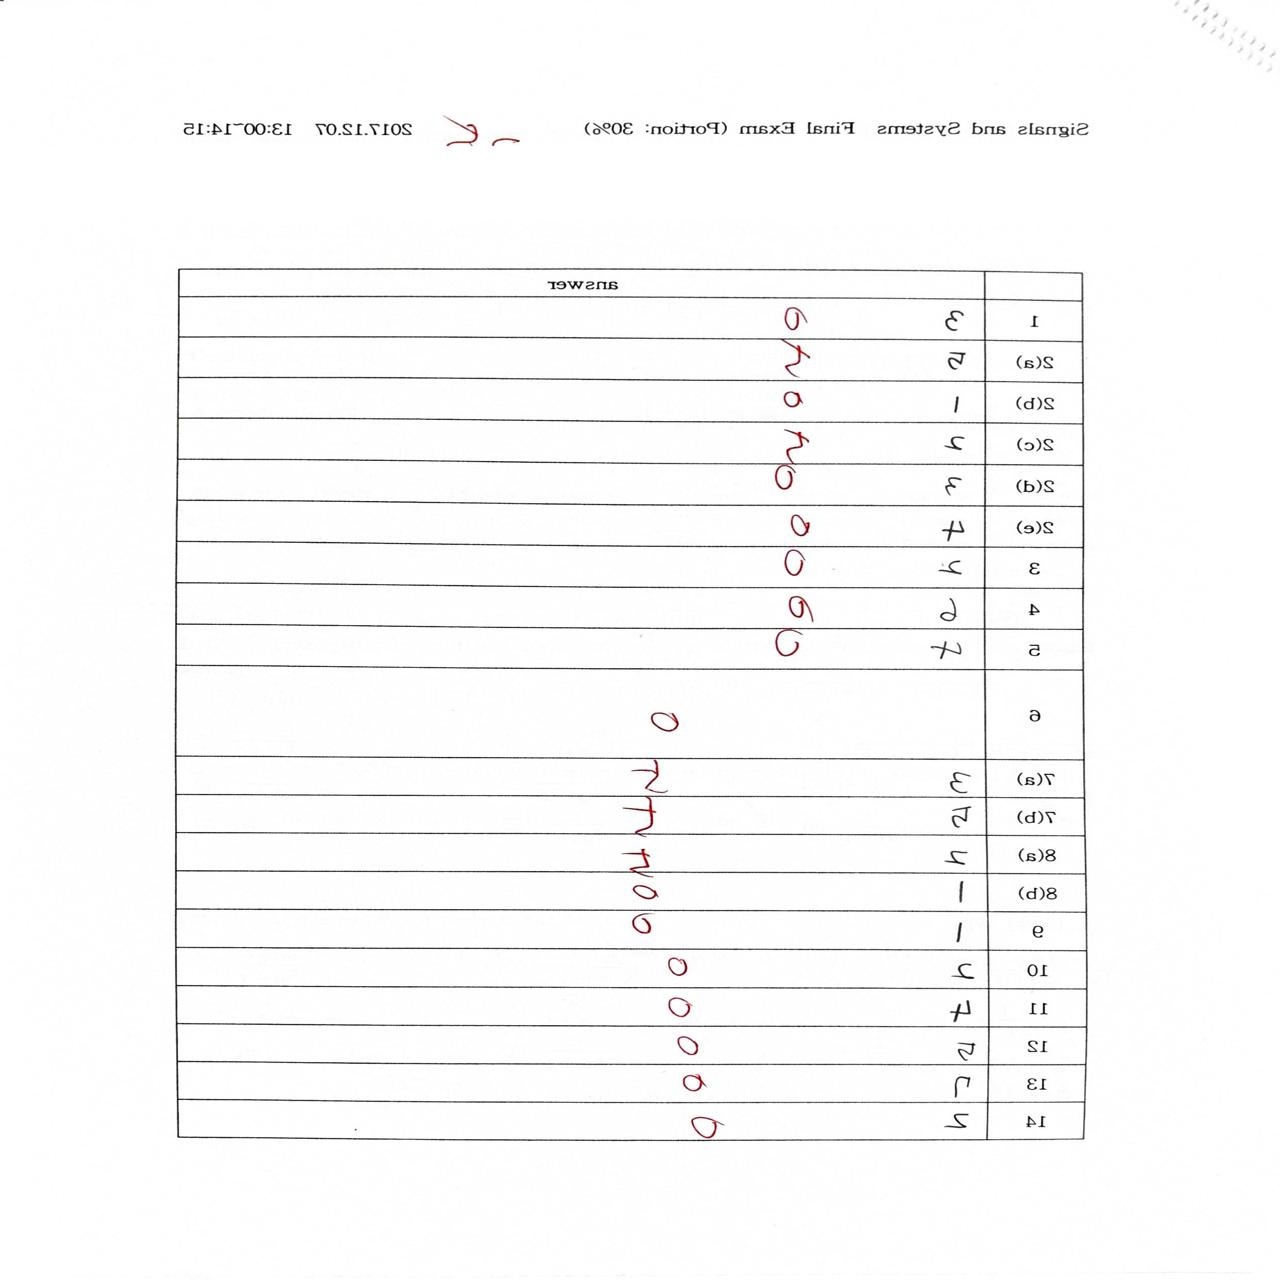 Signals and Systems Final Exam (Portion: 30%) 2017.12.07 13:00~14:15
answer
1 3
2(a) 5
2(b) 1
2(c) 4
2(d) 3
2(e) 7
3 4
4 6
5 7
6
7(a) 3
7(b) 5
8(a) 4
8(b) 1
9 1
10 4
11 7
12 5
13
14 4